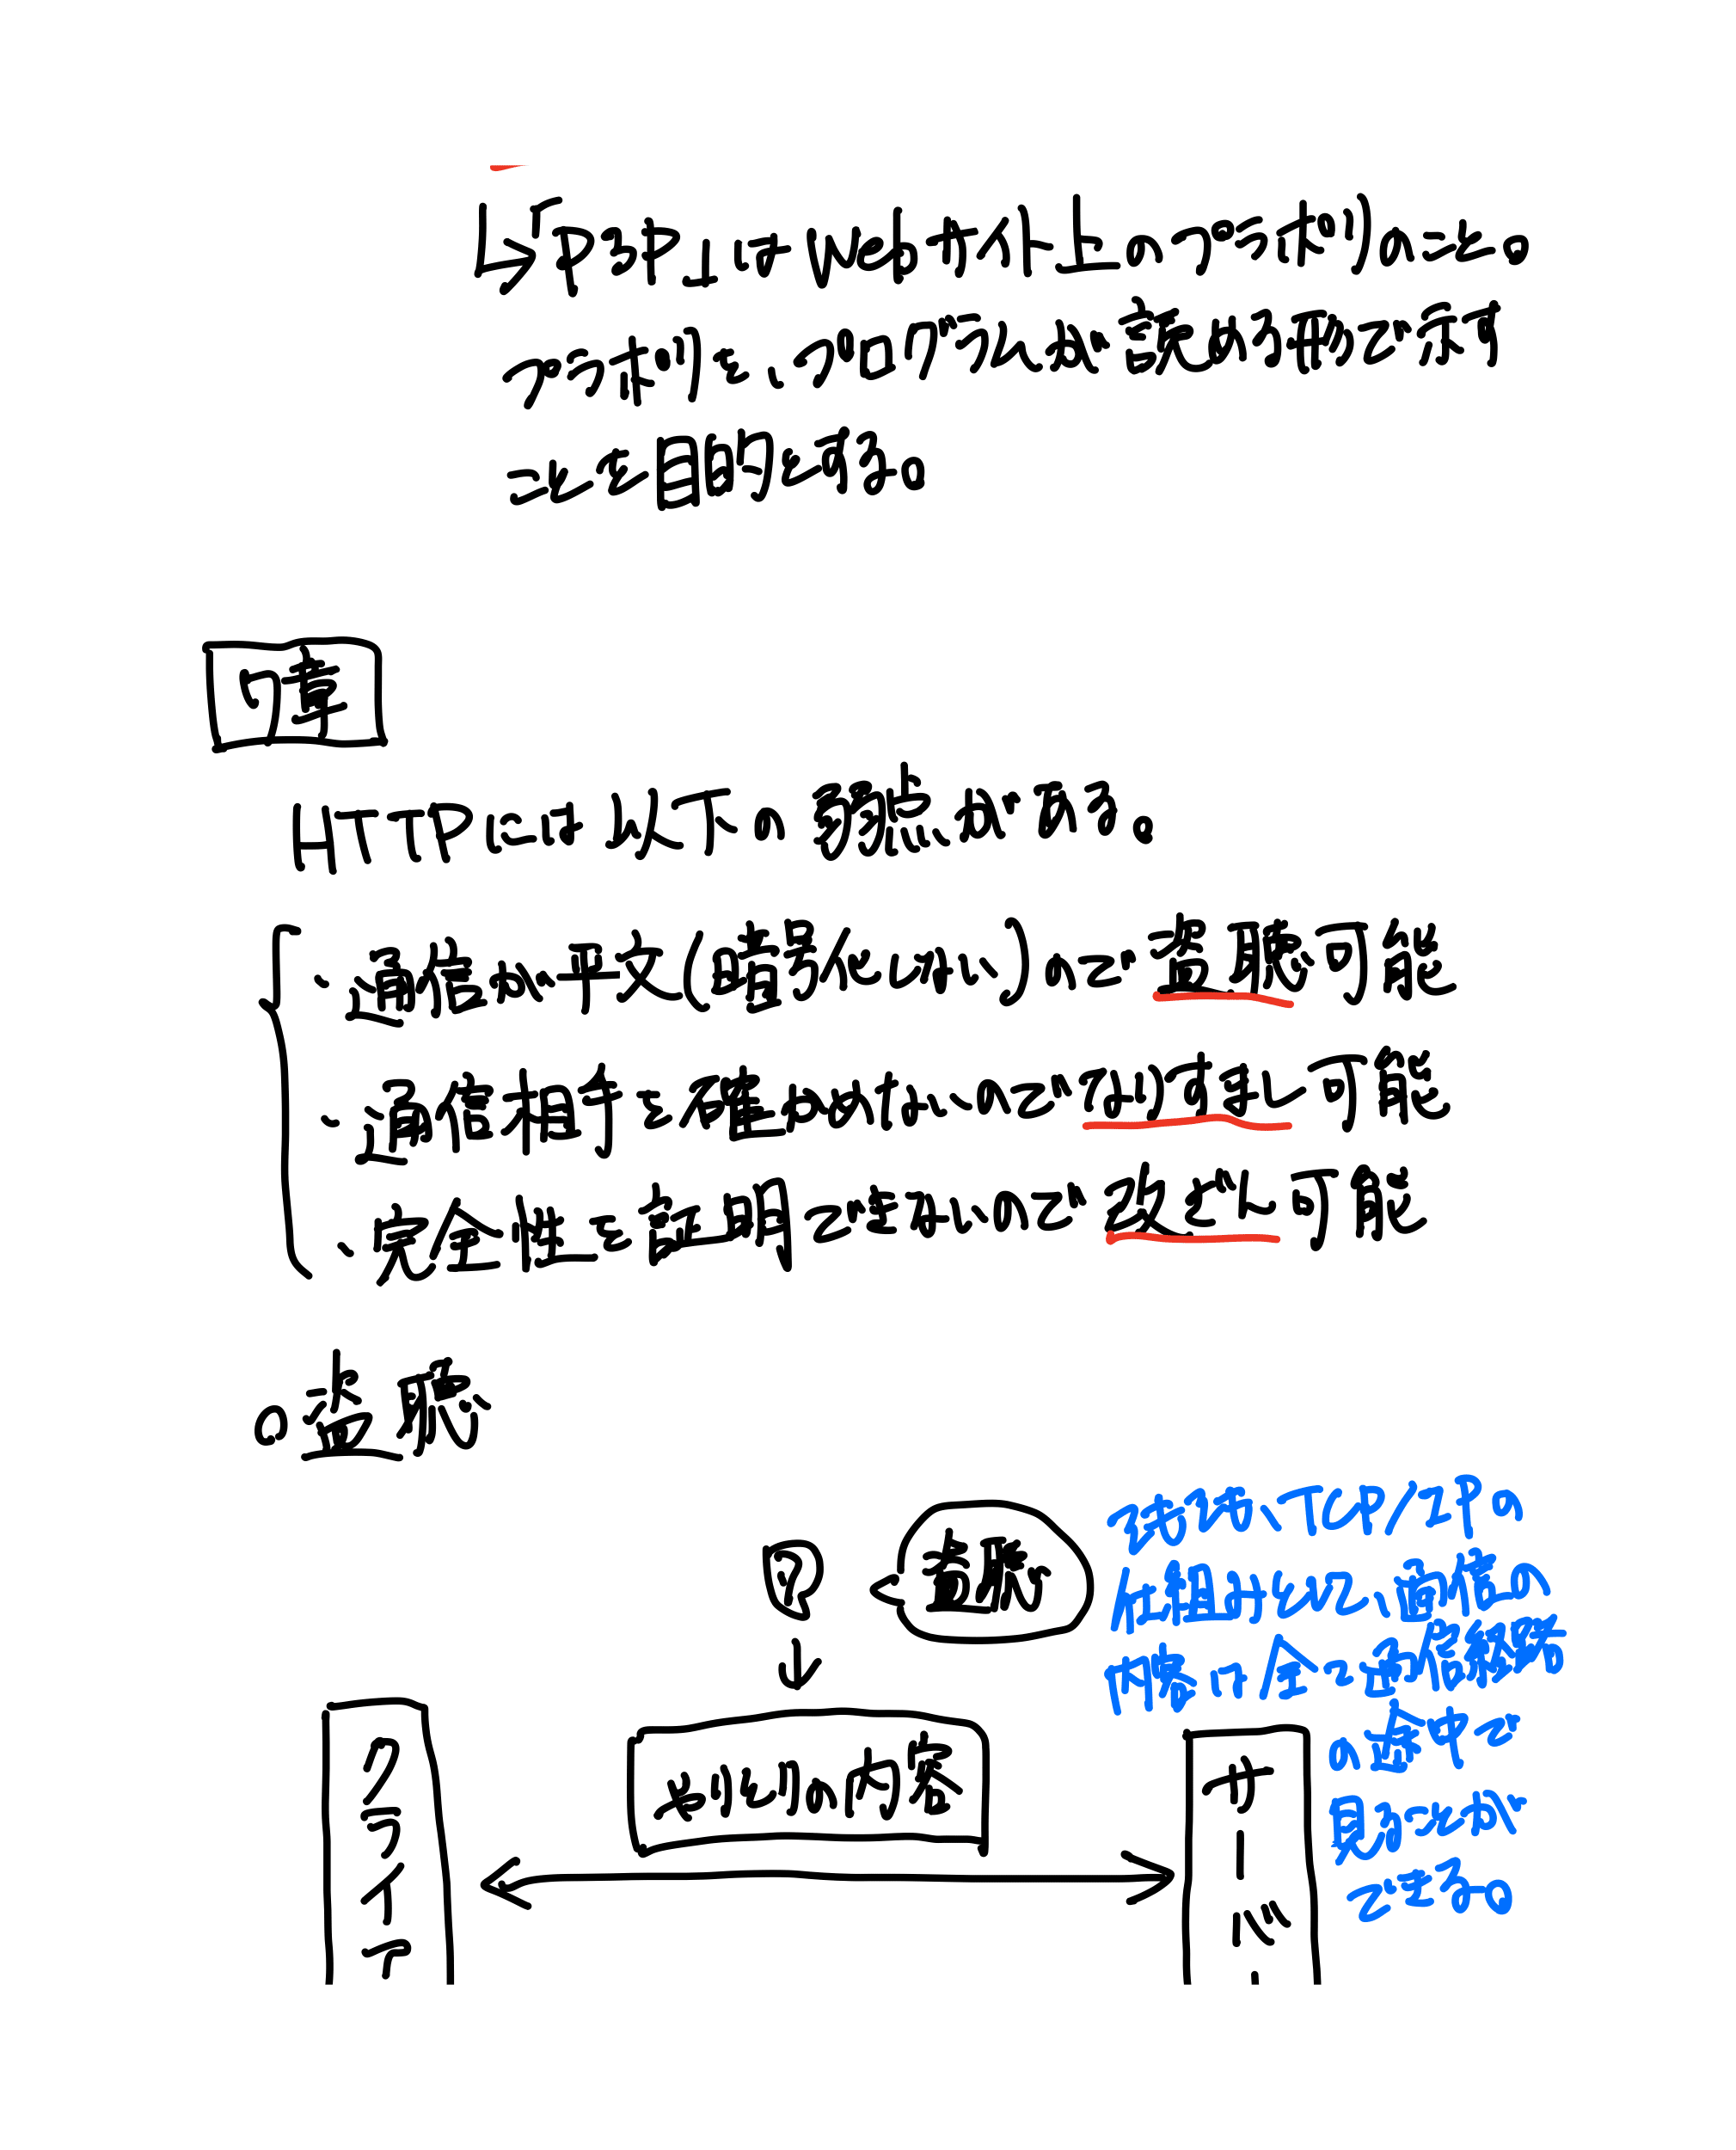 ↳「P3P」はWebサイト上のプラポリのこと。
プラポリを、プログラムが読める形で示す
ことを目的とする。
7章
HTTPには以下の弱点がある。
・通信が平文(暗号化しない)ので盗聴可能
・通信相手を確かめないのでなりすまし可能
・完全性を証明できないので改ざん可能
○盗聴
盗聴
そもそも、TCP/IPの
仕組みとして、通信の
内容は全て通信経路
の途中で
見ることが
できる。
やりとりの内容
クライア
サーバ